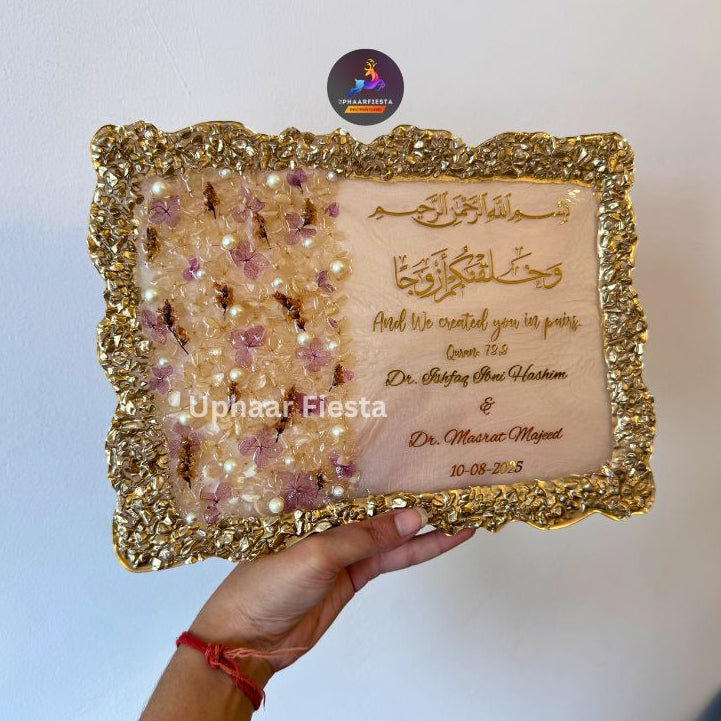 2PHAARFIESTA
بسم الله الرحمن الرحيم
وَخَلَقْنَٰكُمْ أَزْوَٰجًا
And We created you in pairs.
Quran: 78:8
Dr. Ishfaq Ibni Hashim
&
Dr. Masrat Majeed
10-08-2025
Uphaar Fiesta